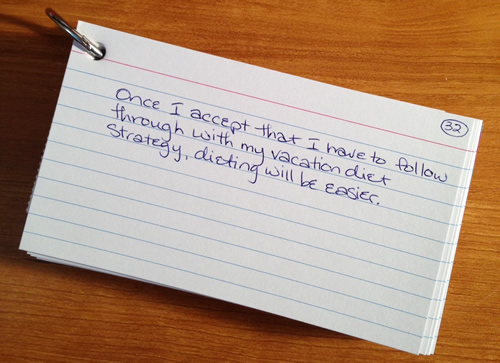 32
Once I accept that I have to follow
through with my vacation diet
strategy, dieting will be easier.